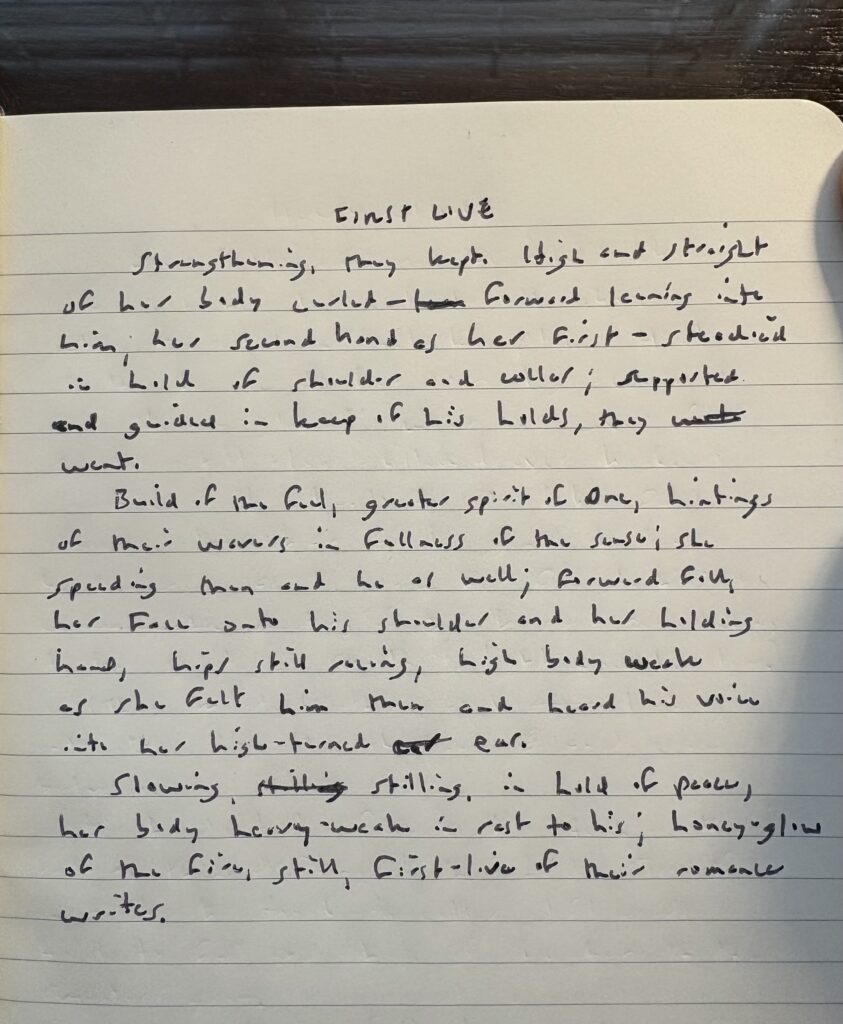 FIRST LIVE
Strengthening, they kept. High and straight
of her body curled – forward leaning into
him; her second hand as her first – steadied
in hold of shoulder and collar; supported
and guided in keep of his holds, they
went.
Build of the feel, greater spirit of One, hintings
of their wavers in fullness of the sense; she
speeding then and he as well; forward fall,
her face onto his shoulder and her holding
hand, hips still racing, high body weak
as she felt him then and heard his voice
into her high-turned ear.
Slowing, stilling, in hold of peace,
her body heavy-weak in rest to his; honey-glow
of the fire, still, first-live of their romance
writes.